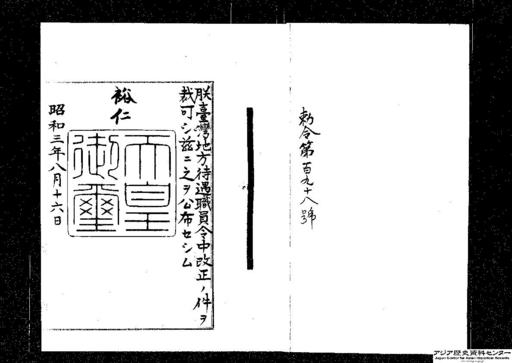 勅令第百九十八號
朕臺灣地方待遇職員令中改正ノ件ヲ
裁可シ茲ニ之ヲ公布セシム
裕仁
天皇
御璽
昭和三年八月十六日
アジア歴史資料センター
Japan Center for Asian Historical Records